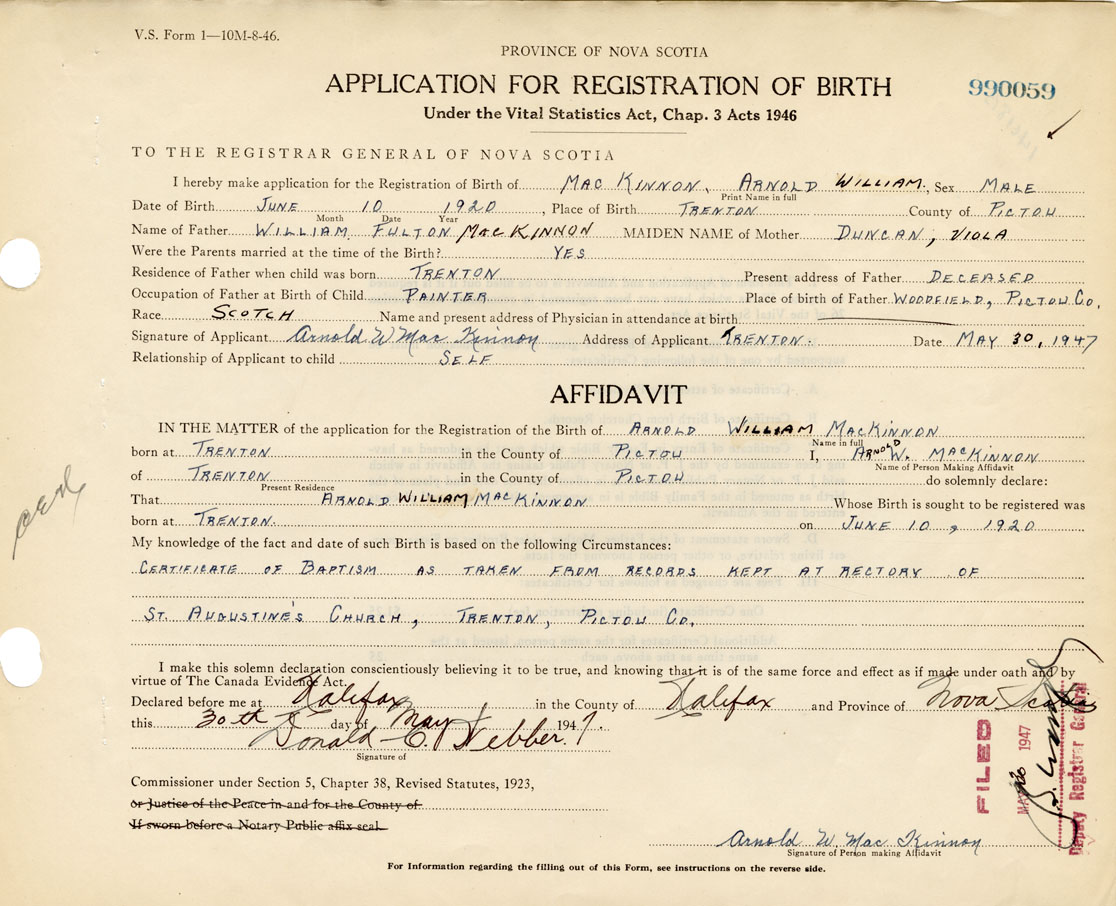 V.S. Form 1—10M-8-46.
PROVINCE OF NOVA SCOTIA
APPLICATION FOR REGISTRATION OF BIRTH
990059
Under the Vital Statistics Act, Chap. 3 Acts 1946
TO THE REGISTRAR GENERAL OF NOVA SCOTIA
I hereby make application for the Registration of Birth of MAC KINNON, ARNOLD WILLIAM, Sex MALE
Print Name in full
Date of Birth JUNE 10 1920, Place of Birth TRENTON County of PICTOU
Month Date Year
Name of Father WILLIAM FULTON MACKINNON MAIDEN NAME of Mother DUNCAN, VIOLA
Were the Parents married at the time of the Birth? YES
Residence of Father when child was born TRENTON Present address of Father DECEASED
Occupation of Father at Birth of Child PAINTER Place of birth of Father WOODFIELD, PICTOU CO.
Race SCOTCH Name and present address of Physician in attendance at birth
Signature of Applicant Arnold W Mac Kinnon Address of Applicant TRENTON. Date MAY 30, 1947
Relationship of Applicant to child SELF
AFFIDAVIT
IN THE MATTER of the application for the Registration of the Birth of ARNOLD WILLIAM MACKINNON
Name in full
born at TRENTON in the County of PICTOU I, ARNOLD W. MACKINNON
Name of Person Making Affidavit
of TRENTON in the County of PICTOU do solemnly declare:
Present Residence
That ARNOLD WILLIAM MACKINNON Whose Birth is sought to be registered was
born at TRENTON. on JUNE 10, 1920
My knowledge of the fact and date of such Birth is based on the following Circumstances:
CERTIFICATE OF BAPTISM AS TAKEN FROM RECORDS KEPT AT RECTORY OF
ST. AUGUSTINE'S CHURCH, TRENTON, PICTOU CO.
I make this solemn declaration conscientiously believing it to be true, and knowing that it is of the same force and effect as if made under oath and by
virtue of The Canada Evidence Act.
Declared before me at Halifax in the County of Halifax and Province of Nova Scotia
this 30th day of May 1947.
Donald C. Webber
Signature of
Commissioner under Section 5, Chapter 38, Revised Statutes, 1923,
or Justice of the Peace in and for the County of
If sworn before a Notary Public affix seal.
FILED
1947
Deputy Registrar General
Arnold W. Mac Kinnon
Signature of Person making Affidavit
For Information regarding the filling out of this Form, see instructions on the reverse side.